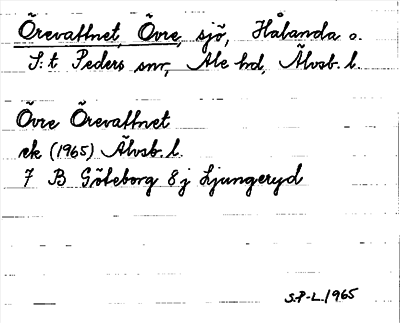 Örevattnet, Övre, sjö, Hålanda o.
S:t Peders snr, Ale hd, Älvsb. l.
Övre Örevattnet
ek (1965) Älvsb. l.
7 B Göteborg 8 j Ljungeryd
S.P-L. 1965